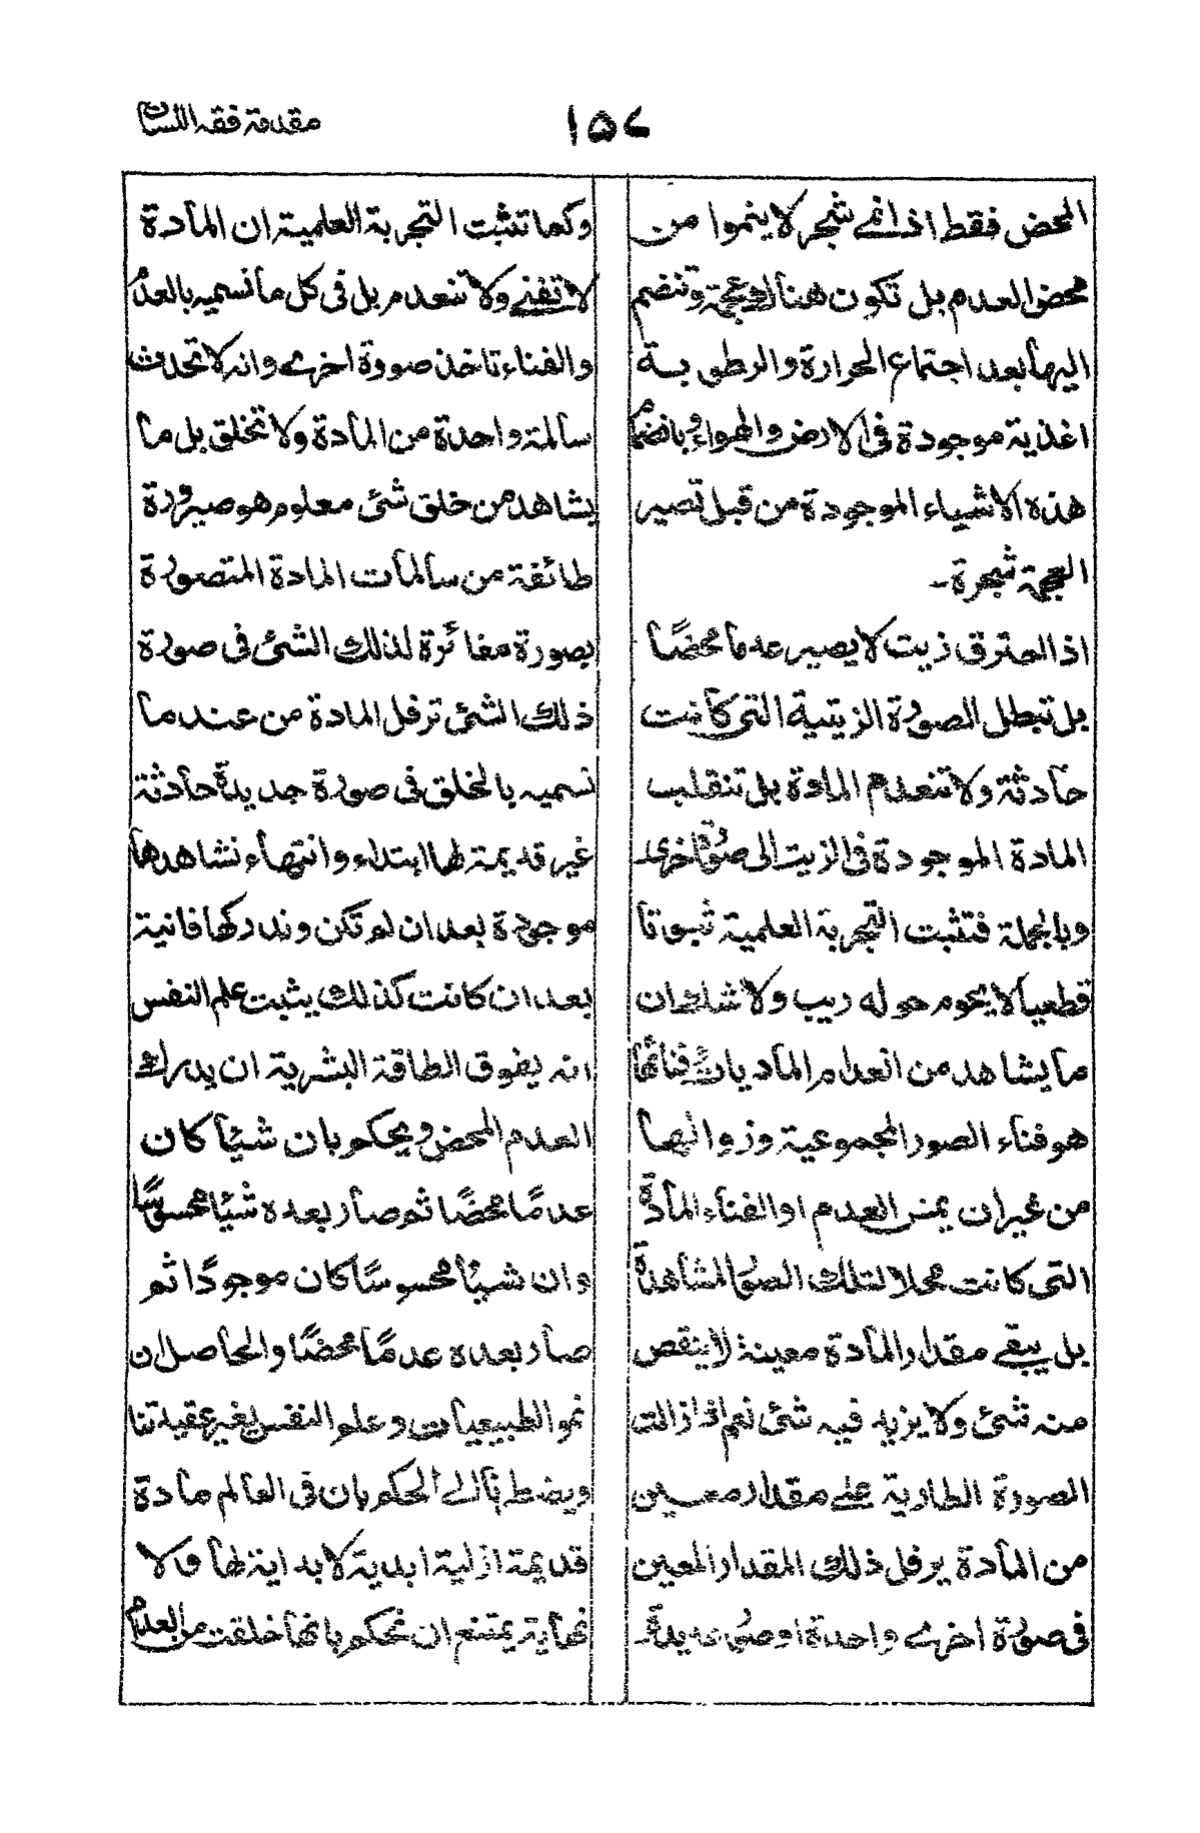 مقدمة فقه اللسان
١٥٧
المحض فقط اذ انمى شجر لا ينموا من
محض العدم بل تكون هناك عجمة وتنضم
اليها بعد اجتماع الحرارة والرطوبة
اغذية موجودة فى الارض والهواء وبانضمام
هذه الاشياء الموجودة من قبل تصير
العجمة شجرة۔
اذا احترق زيت لا يصير عدما محضًا
بل تبطل الصورة الزيتية التى كانت
حادثة ولا تنعدم المادة بل تنقلب
المادة الموجودة فى الزيت الى صورة اخرى۔
وبالجملة فتثبت التجربة العلمية ثبوتا
قطعيا لا يحوم حوله ريب ولا شك ان
ما يشاهد من انعدام الماديات وفنائها
هو فناء الصور المجموعية وزوالها
من غير ان يمس العدم او الفناء المادة
التى كانت محلا لتلك الصور المشاهدة
بل يبقى مقدار المادة معينة لا ينقص
منه شئ ولا يزيد فيه شئ نعم اذا زالت
الصورة الطارية على مقدار معين
من المادة يرفل ذلك المقدار المعين
فى صورة اخرى واحدة او صور عديدة۔
وكما تثبت التجربة العلمية ان المادة
لا تفنى ولا تنعدم بل فى كل ما نسميه بالعدم
والفناء تاخذ صورة اخرى وانه لا تحدث
سالمة واحدة من المادة ولا تخلق بل ما
يشاهد من خلق شئ معلوم هو صيرورة
طائفة من سالمات المادة المتصورة
بصورة مغائرة لذلك الشئ فى صورة
ذلك الشئ ترفل المادة من عند ما
نسميه بالخلق فى صورة جديدة حادثة
غير قديمة لها ابتداء وانتهاء نشاهدها
موجودة بعد ان لم تكن وندركها فانية
بعد ان كانت كذلك يثبت علم النفس
انه يفوق الطاقة البشرية ان يدرك
العدم المحض ويحكم بان شيأ كان
عدمًا محضًا ثم صار بعده شيًا محسوسًا
وان شيئا محسوسًا كان موجودًا ثم
صار بعده عدمًا محضًا والحاصل ان
نمو الطبيعيات وعلم النفس يغير عقيدتنا
ويضطرنا الى الحكم بان فى العالم مادة
قديمة ازلية ابدية لا بداية لها ولا
نهاية يمتنع ان نحكم بانها خلقت من العدم